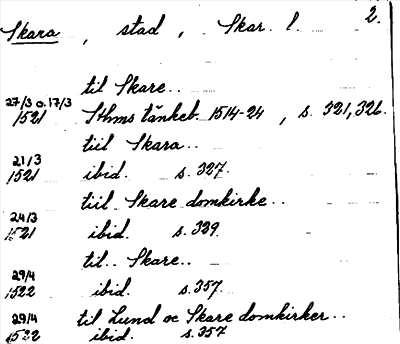 Skara, stad, Skar. l. 2.
til Skare..
27/3 o. 17/3
1521 Sthms tänkeb. 1514-24, s. 321, 326.
tiil Skara..
21/3
1521 ibid. s. 327.
tiil Skare domkirke..
24/3
1521 ibid. s. 339.
til.. Skare..
29/4
1522 ibid. s. 357.
29/4 til Lund oc Skare domkirker..
1522 ibid. s. 357